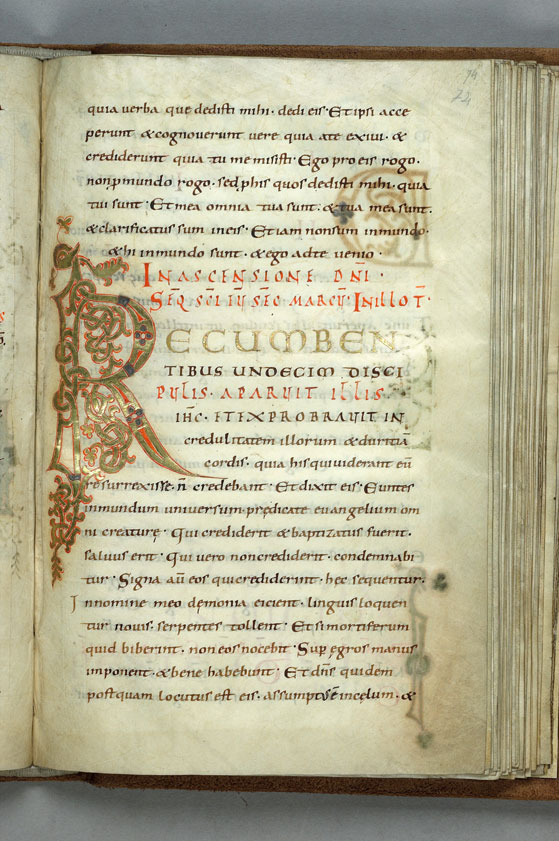 74
24
quia verba que dedisti mihi · dedi eis · Et ipsi acce
perunt & cognoverunt vere quia a te exivi · &
crediderunt quia tu me misisti · Ego pro eis rogo ·
non p mundo rogo · sed p his quos dedisti mihi · quia
tui sunt · Et mea omnia tua sunt · & tua mea sunt ·
& clarificatus sum in eis · Et iam non sum in mundo ·
& hi in mundo sunt · & ego ad te venio ·
IN ASCENSIONE DNI ·
SEQ SCI EV SEC MARCU · IN ILLO T ·
RECUMBEN
TIBUS UNDECIM DISCI
PULIS · APARUIT ILLIS
IHC · ET EXPROBRAVIT IN
credulitatem illorum & duritia
cordis · quia his qui viderant eū
resurrexisse · n̄ credebant · Et dixit eis · Euntes
in mundum universum · predicate euangelium om
ni creature · Qui crediderit & baptizatus fuerit ·
salvus erit · Qui vero non crediderit · condemnabi
tur · Signa aū eos qui crediderint · hec sequentur ·
In nomine meo demonia eicient · linguis loquen
tur novis · serpentes tollent · Et si mortiferum
quid biberint · non eos nocebit · Sup egros manus
imponent · & bene habebunt · Et dns quidem
postquam locutus est eis · assumptus ē in celum · &